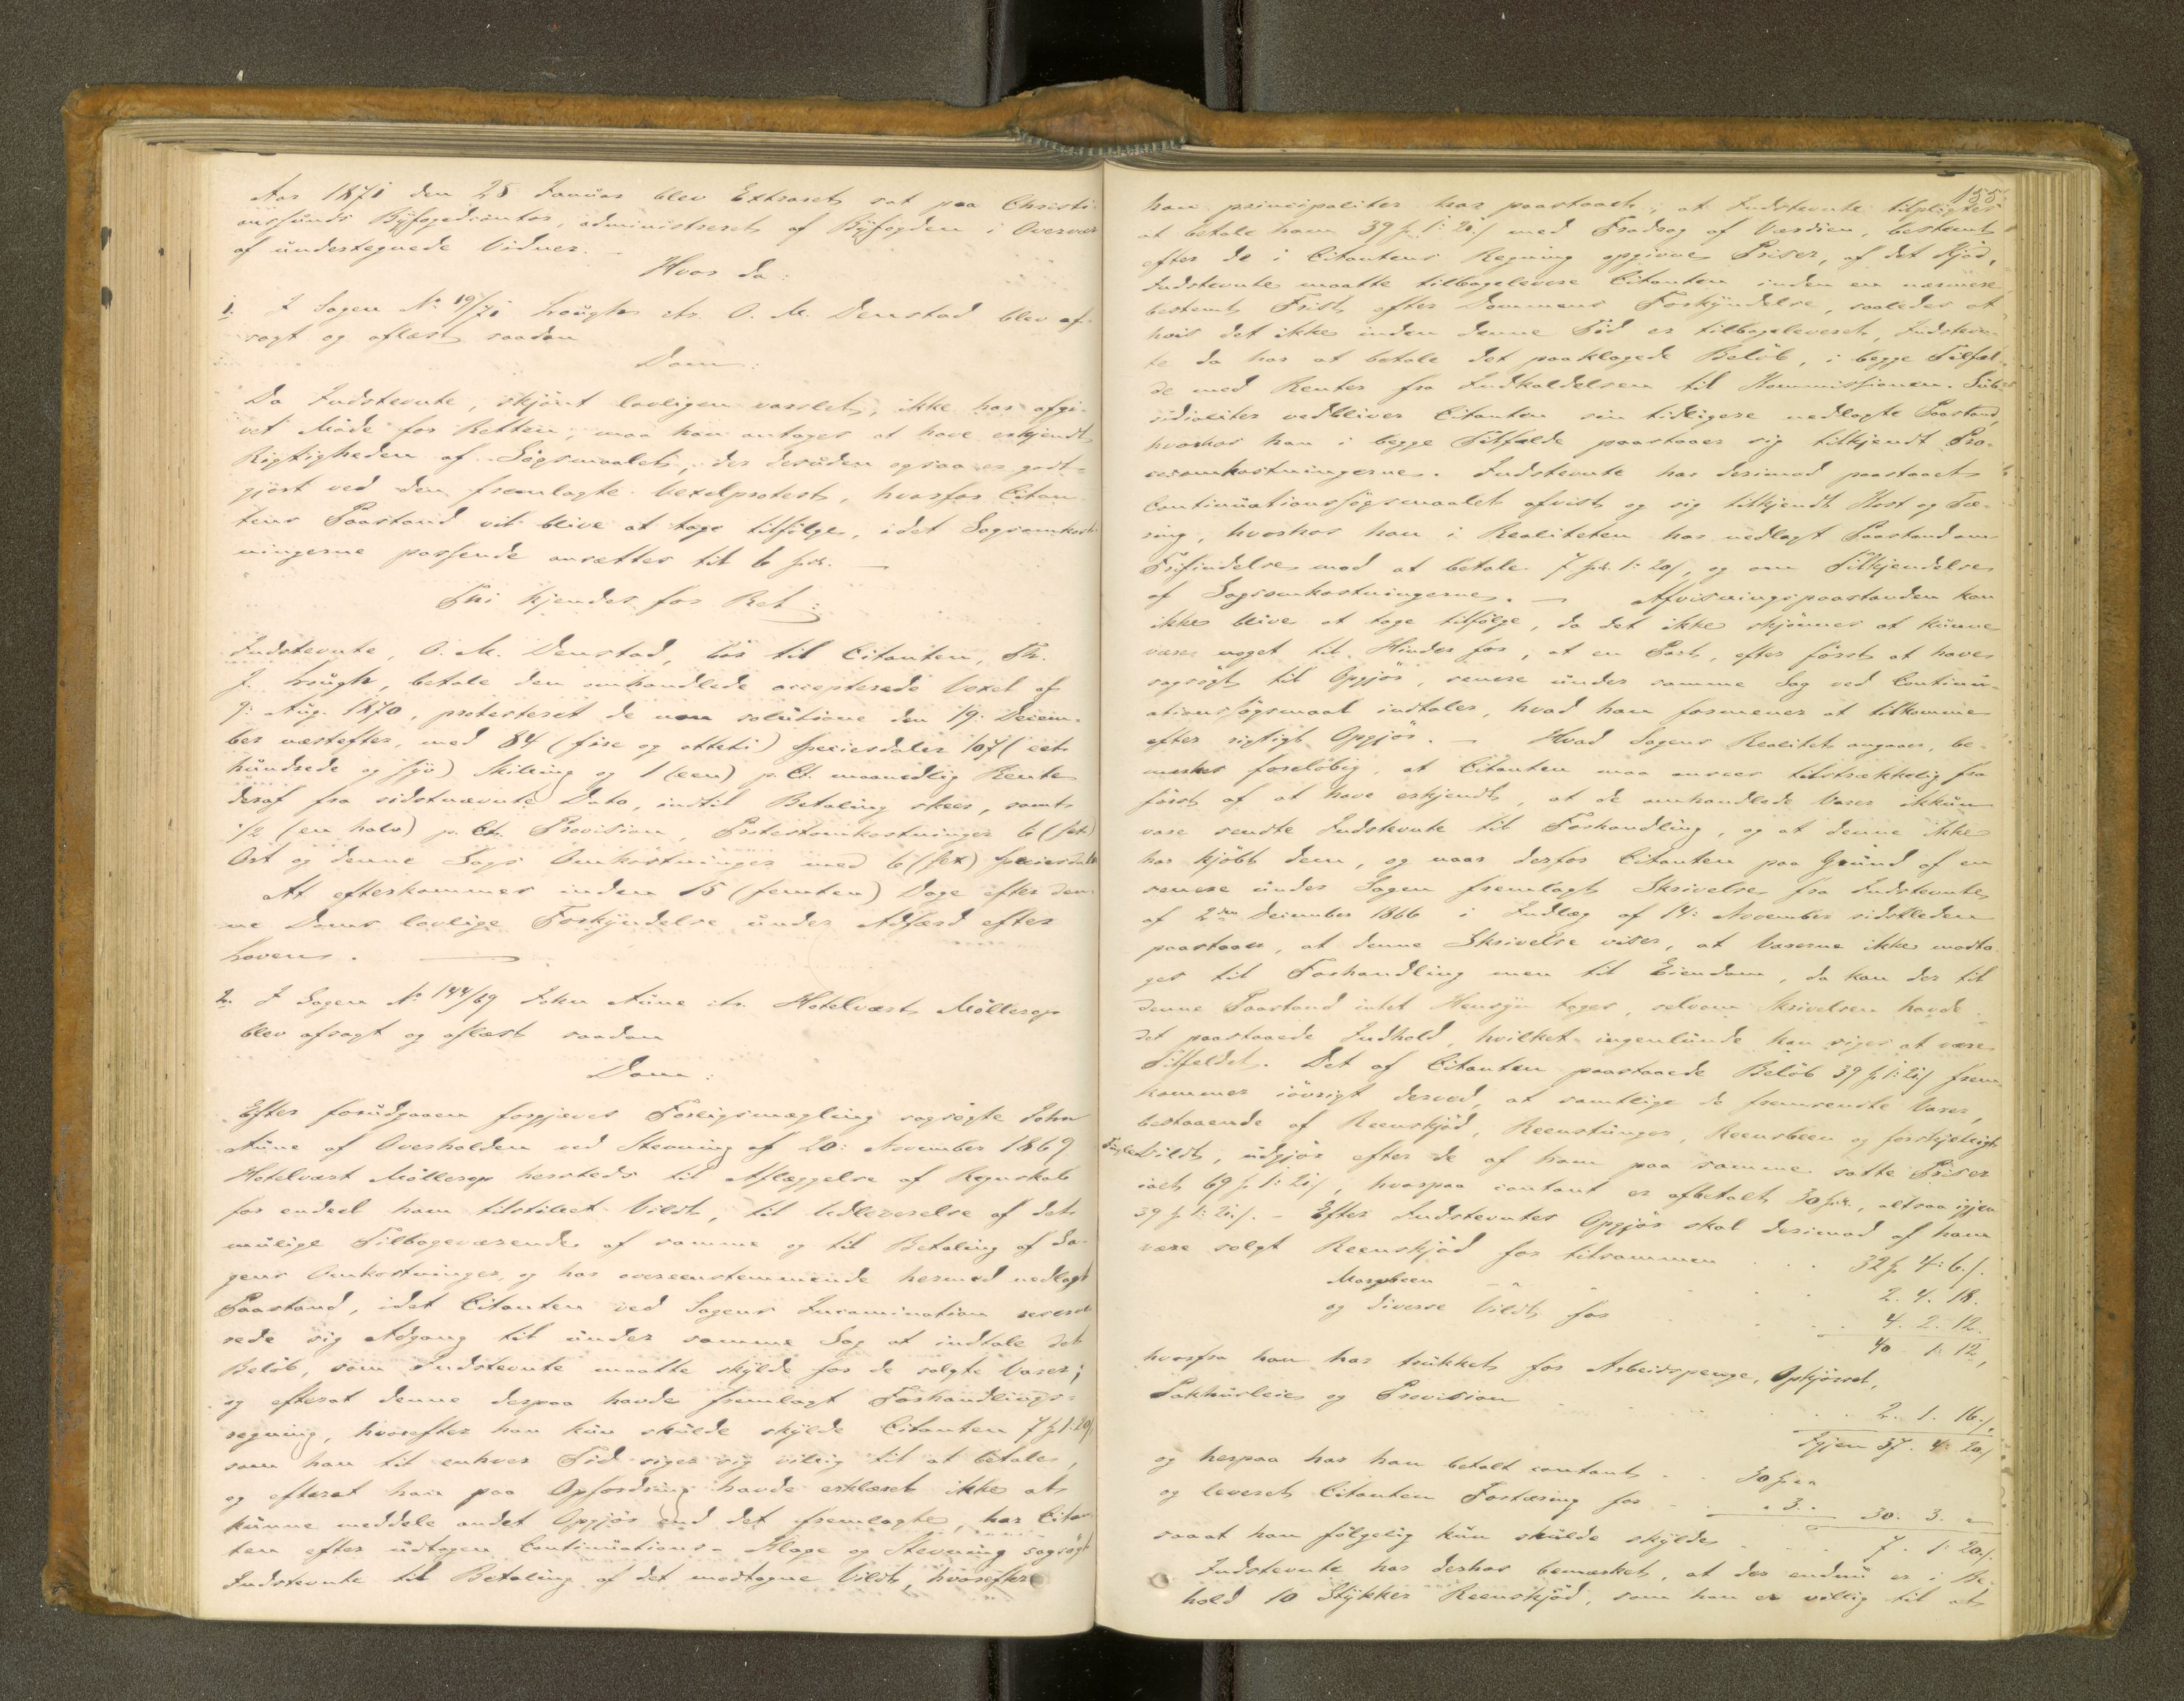 Aar 1871 den 25 Januar blev Extraret sat paa Christi-
anssunds Byfogedcontor, administreret af Byfogden i Overvær
af undertegnede Vidner. —
Hvor da:
1. I Sagen No 19/71 Lough ctr. O. M. Denstad blev af-
sagt og aflæst saadan
Dom:
Da Indstevnte, skjönt lovligen varslet, ikke har afgi-
vet Möde for Retten, maa han antages at have erkjendt
Rigtigheden af Sögsmaalet, der desuden ogsaa er godt-
gjort ved den fremlagte Vexelprotest, hvorfor Citan-
tens Paastand vil blive at tage tilfölge, idet Sagsomkost-
ningerne passende ansættes til 6 Spd. —
Thi kjendes for Ret:
Indstevnte, O. M. Denstad, bör til Citanten, Th.
J. Lough, betale den omhandlede accepterede Vexel af
9: Aug. 1870, protesteret de non solutione den 19: Decem-
ber næstefter, med 84 (fire og otteti) Speciesdaler 107 (eet
hundrede og syv) Skilling og 1 (een) p. Ct. maanedlig Rente
deraf fra sidstnævnte Dato, indtil Betaling skeer, samt
1/2 (en halv) p. Ct. Provision, Protestomkostninger 6 (sex)
Ort og denne Sags Omkostninger med 6 (sex) Speciesdaler
At efterkommes inden 15 (femten) Dage efter den-
ne Doms lovlige Forkyndelse under Adfærd efter
Loven. —
2. I Sagen No 144/69 John Aune ctr. Hotelvært Möllerop
blev afsagt og aflæst saadan
Dom:
Efter forudgaaen forgjæves Forligsmægling sagsögte John
Aune af Overhalden ved Stevning af 20: November 1869
Hotelvært Möllerop hersteds til Aflæggelse af Regnskab
for endeel ham tilstillet Vildt, til Udleverelse af det
mulige Tilbageværende af samme og til Betaling af Sa-
gens Omkostninger, og har overeenstemmende hermed nedlagt
Paastand, idet Citanten ved Sagens Incamination reserve-
rede sig Adgang til under samme Sag at indtale det
Belöb, som Indstevnte maatte skylde for de solgte Varer;
og efterat denne derpaa havde fremlagt Forhandlings-
regning, hvorefter han kun skulde skylde Citanten 7 Sp 1: 20 s
som han til enhver Tid siger sig villig til at betale,
og efterat han paa Opfordring havde erklæret ikke at
kunne meddele andet Opgjör end det fremlagte, har Citan-
ten efter udtagen Continuations-Klage og Stevning sagsögt
Indstevnte til Betaling af det modtagne Vildt, hvorefter
155.
han principaliter har paastaaet, at Indstevnte tilpligtes
at betale ham 39 Sp. 1: 21 s med Fradrag af Værdien, bestemt
efter de i Citantens Regning opgivne Priser, af det Kjöd,
Indstevnte maatte tilbagelevere Citanten inden en nærmere
bestemt Frist efter Dommens Forkyndelse, saaledes at
hvis det ikke inden denne Tid er tilbageleveret, Indstevn-
te da har at betale det paaklagede Belöb, i begge Tilfæl-
de med Renter fra Indkaldelsen til Kommissionen. Sub-
sidialiter vedbliver Citanten sin tidligere nedlagte Paastand,
hvorhos han i begge Tilfælde paastaaer sig tilkjendt Pro-
cesomkostningerne. Indstevnte har derimod paastaaet
Continuationssögsmaalet afvist og sig tilkjendt Kost og Tæ-
ring, hvorhos han i Realiteten har nedlagt Paastand om
Frifindelse mod at betale 7 Spd. 1: 20 s, og om Tilkjendelse
af Sagsomkostningerne. — Afvisningspaastanden kan
ikke blive at tage tilfölge, da det ikke skjönnes at kunne
være noget til Hinder for, at en Part, efter först at have
sagsögt til Opgjör, senere under samme Sag ved Continu-
ationssögsmaal indtaler, hvad han formener at tilkomme
efter rigtigt Opgjör. — Hvad Sagens Realitet angaaer, be-
mærkes foreløbig, at Citanten maa ansees tilstrækkelig fra
först af at have erkjendt, at de omhandlede Varer ikkun
vare sendte Indstevnte til Forhandling, og at denne ikke
har kjöbt dem, og naar derfor Citanten paa Grund af en
senere under Sagen fremlagt Skrivelse fra Indstevnte
af 2den December 1866 i Indlæg af 14: November sidstleden
paastaaer, at denne Skrivelse viser, at Varerne ikke modto-
ges til Forhandling men til Eiendom, da kan der til
denne Paastand intet Hensyn tages, selvom Skrivelsen havde
det paastaaede Indhold, hvilket ingenlunde kan siges at være
Tilfældet. Det af Citanten paastaaede Belöb 39 Sp 1: 21 s frem-
kommer iövrigt derved, at samtlige de fremsendte Varer,
bestaaende af Reenskjöd, Reenstunger, Reensbeen og forskjelligt
Fugle Vildt, udgjör efter de af ham paa samme satte Priser
ialt 69 Sp 1: 21 s, hvorpaa contant er afbetalt 30 Spd., altsaa igjen
39 Sp 1: 21 s. — Efter Indstevntes Opgjör skal derimod af ham
være solgt Reenskjöd for tilsammen . . . 32 Sp 4: 6. s.
Marvbeen — " — . . . 2. 4. 18.
og diverse Vildt for . . . 4. 2. 12.
40 1. 12,
hvorfra han har trukket for Arbeidspenge, Opkjörsel,
Pakhusleie og Provision . . . 2. 1. 16 s.
Igjen 37. 4. 20 s
og herpaa har han betalt contant . . 30 Spd "
og leveret Citanten Fortæring for . . " 3. " 30. 3. "
saaat han fölgelig kun skulde skylde . . . 7. 1. 20 s.
Indstevnte har derhos bemærket, at der endnu er i Be-
hold 10 Stykker Reenskjöd, som han er villig til at